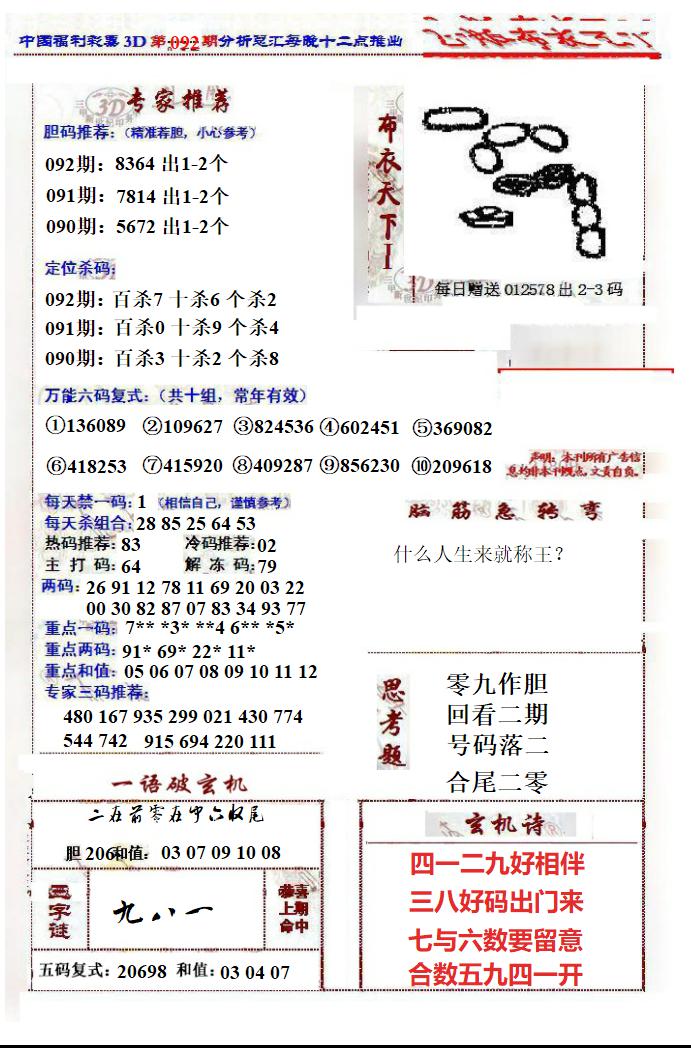 中国福利彩票3D 第:092期分析总汇每晚十二点推出
3D 专家推荐
胆码推荐:（精准荐胆，小心参考）
092期：8364 出1-2个
091期：7814 出1-2个
090期：5672 出1-2个
定位杀码:
092期：百杀7 十杀6 个杀2
091期：百杀0 十杀9 个杀4
090期：百杀3 十杀2 个杀8
布衣天下I
每日赠送 012578 出 2-3 码
万能六码复式：（共十组，常年有效）
①136089 ②109627 ③824536 ④602451 ⑤369082
⑥418253 ⑦415920 ⑧409287 ⑨856230 ⑩209618
声明：本刊所有广告信
息均非本刊观点，文责自负。
每天禁一码: 1 （相信自己，谨慎参考）
每天杀组合: 28 85 25 64 53
热码推荐: 83 冷码推荐: 02
主 打 码: 64 解 冻 码: 79
两码: 26 91 12 78 11 69 20 03 22
00 30 82 87 07 83 34 93 77
重点一码: 7** *3* **4 6** *5*
重点两码: 91* 69* 22* 11*
重点和值: 05 06 07 08 09 10 11 12
专家三码推荐:
480 167 935 299 021 430 774
544 742 915 694 220 111
脑 筋 急 转 弯
什么人生来就称王？
思考题
零九作胆
回看二期
号码落二
合尾二零
一语破玄机
二在前零在中六收尾
胆 206和值: 03 07 09 10 08
字谜
九八一
恭喜
上期
命中
五码复式: 20698 和值: 03 04 07
玄机诗
四一二九好相伴
三八好码出门来
七与六数要留意
合数五九四一开